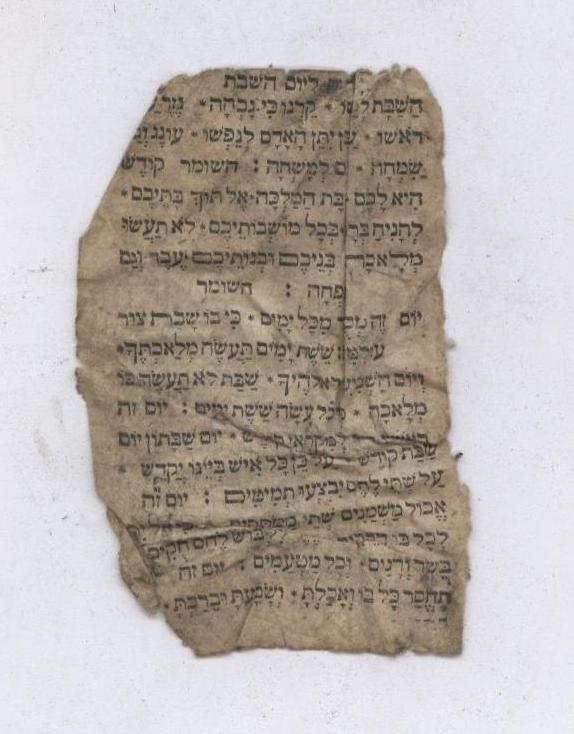 ליום השבת
השבת לנפשו • קרנו כי גבהה • נזר
ראשו • יתן האדם לנפשו • עונג וגם
שמחה • למשחה : השומר קודש
היא לכם בת המלכה • אל תוך בתיכם •
להניח ברכה • בכל מושבותיכם • לא תעשו
מלאכה בניכם ובנותיכם עבד וגם
שפחה : השומר
יום זה מכל ימים • כי בו שבת צור
עולמים: ששת ימים תעשה מלאכתך •
ויום השביעי לאלהיך • שבת לא תעשה בו
מלאכה • כל עשה ששת ימים : יום זה
למקראי • יום שבתון יום
שבת קודש • על כן כל איש ביינו יקדש •
על שתי לחם יבצעו תמימים : יום זה
אכול משמנים שתי ממתקים
לכל בו לבוש לחם חקים
בשר ודגים • וכל מטעמים : יום זה
תחסר כל בו ואכלת • ושבעת וברכת •